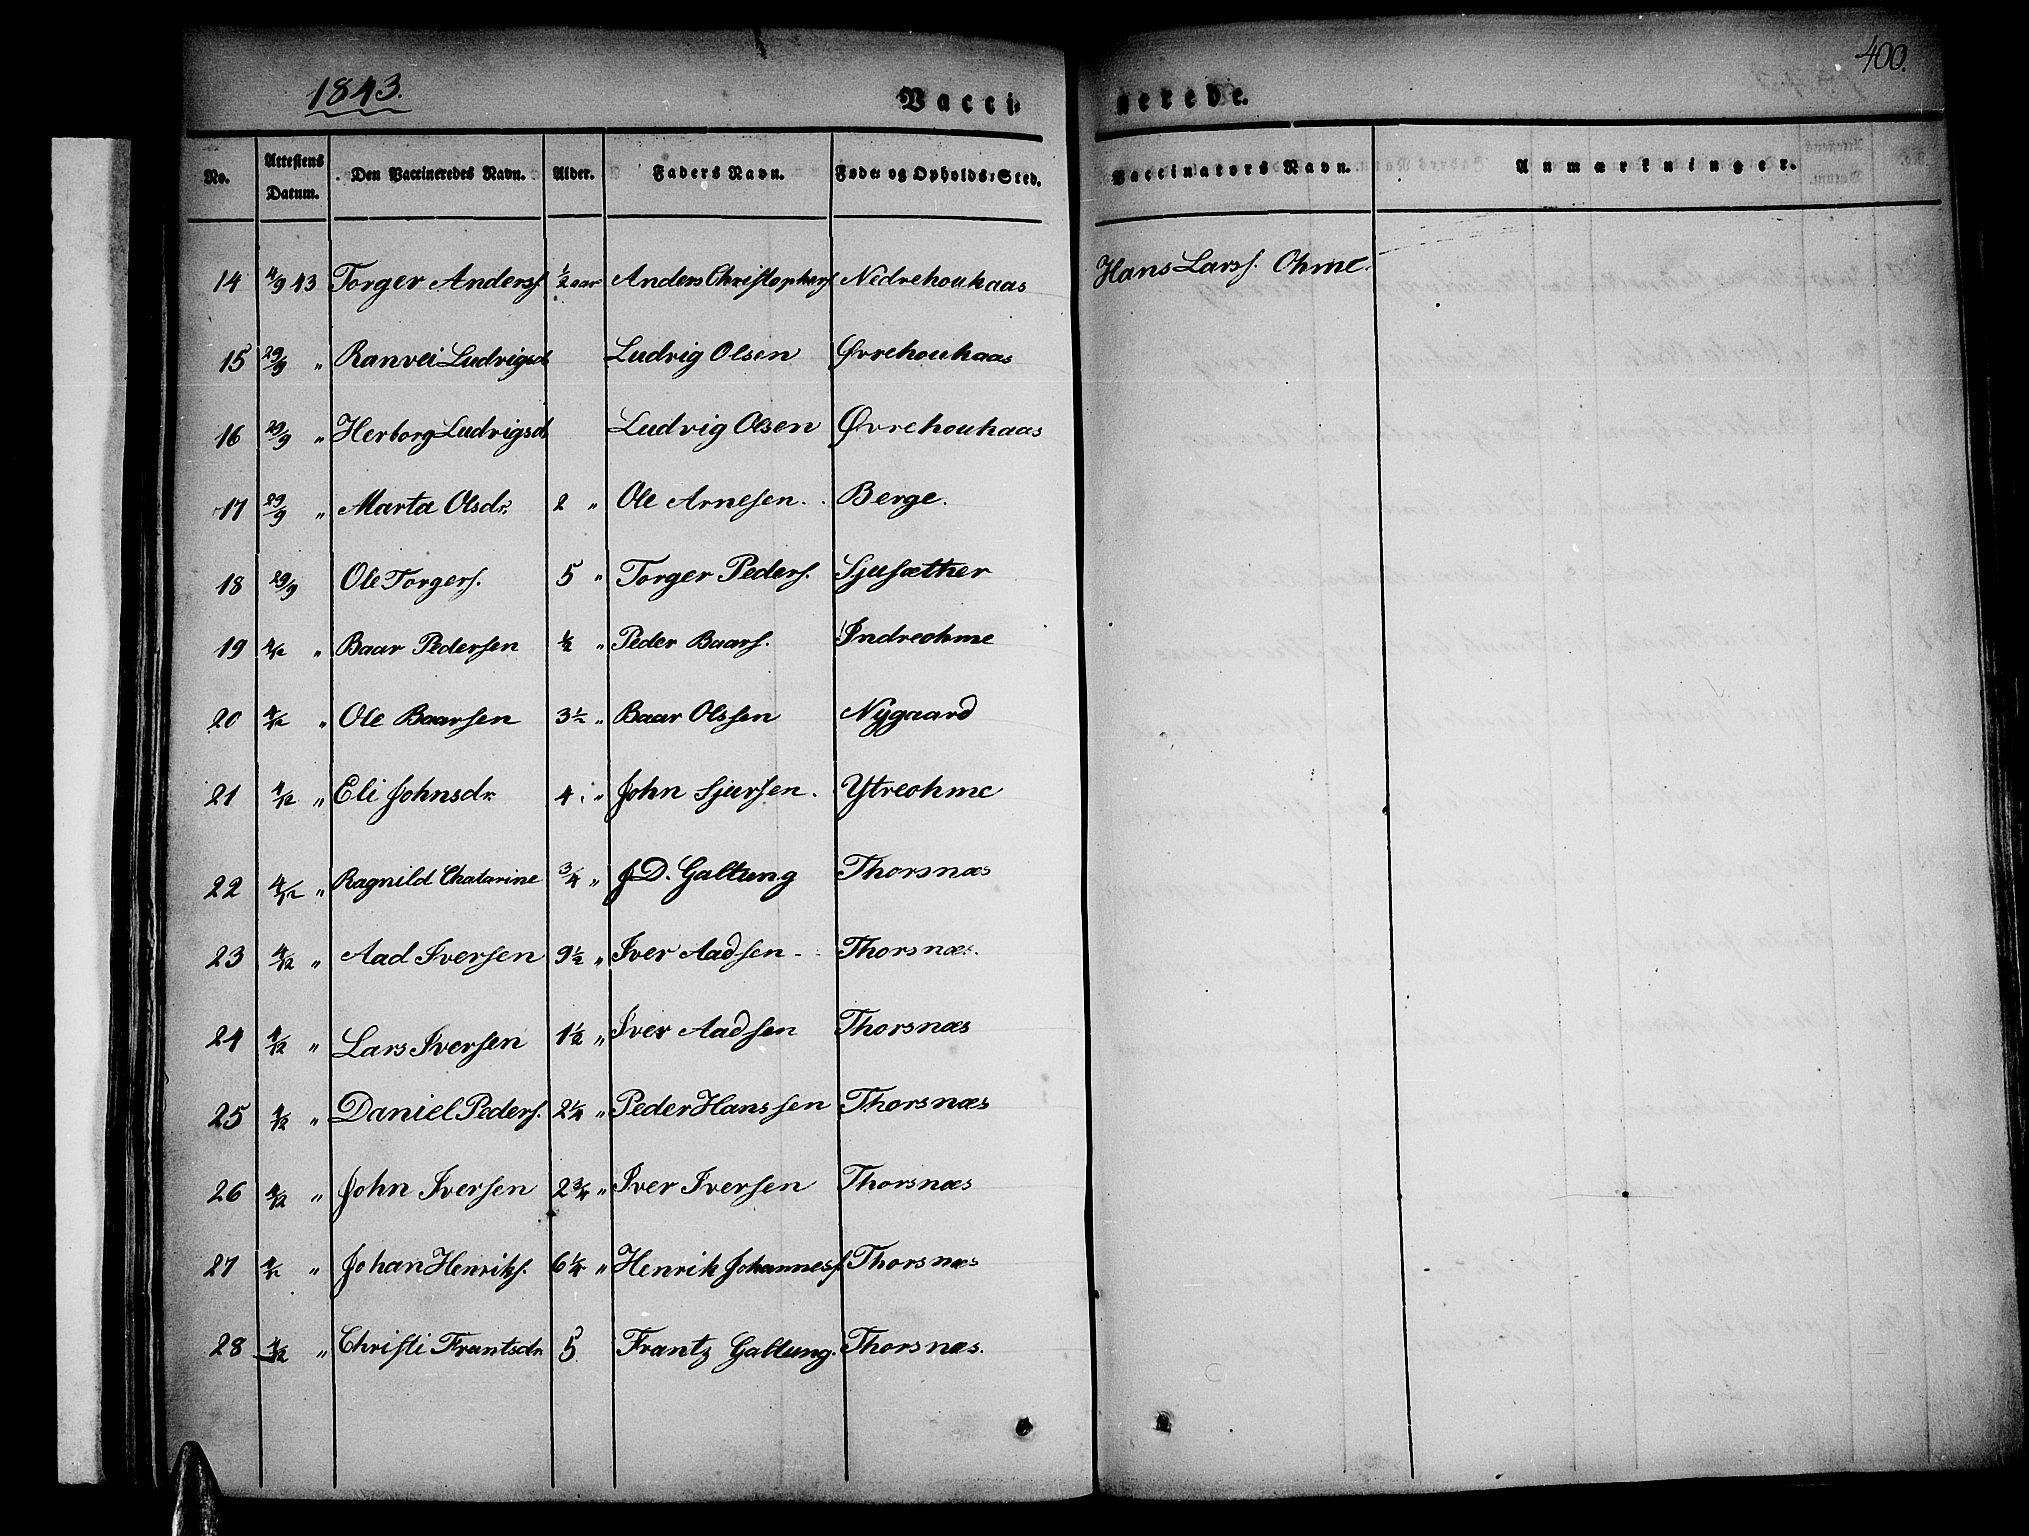 1843.
Vacci-
nerede.
400.
No. Attestens Datum. Den Vaccineredes Navn. Alder. Faders Navn. Føde- og Opholds-Sted. Vaccinators Navn. Anmærkninger.
14 4/9 43 Torger Anders. ½ aar Anders Christophers. Nedrehoukaas Hans Lars. Ohme.
15 29/9 " Ranvei Ludvigsd Ludvig Olsen Øvrehoukaas
16 29/9 " Herborg Ludvigsd Ludvig Olsen Øvrehoukaas
17 29/9 " Marta Olsdr. 2 " Ole Arnesen. Berge.
18 29/9 Ole Torgers. 5 " Torger Peders. Sjusæther
19 4/12 " Baar Pedersen ½ " Peder Baars. Indreohme
20 4/12 " Ole Baarsen 3½ " Baar Olssen Nygaard
21 4/12 " Eli Johnsdr. 4 " John Sjursen. Ytreohme
22 4/12 " Ragnild Chatarine ¾ " J D. Galtung Thorsnæs
23 4/12 " Aad Iversen 9½ " Iver Aadsen Thorsnæs.
24 4/12 " Lars Iversen 1½ " Iver Aadsen Thorsnæs
25 4/12 " Daniel Peders. 2¼ " Peder Hanssen Thorsnæs
26 4/12 " John Iversen 2¾ " Iver Iversen Thorsnæs
27 4/12 " Johan Henriks. 6¼ " Henrik Johanness. Thorsnæs
28 4/12 " Christi Frantsdr. 5 Frantz Galtung. Thorsnæs.